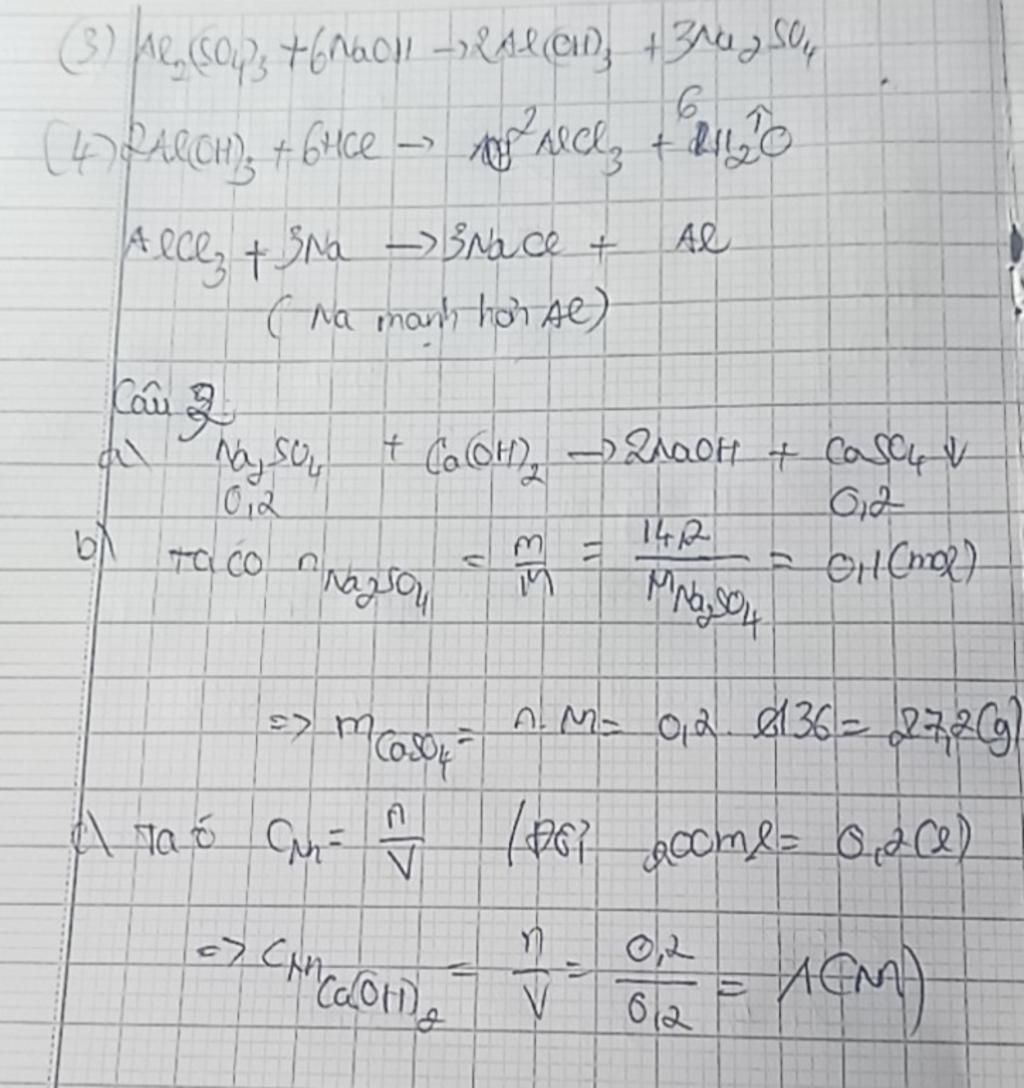 (3) Al₂(SO₄)₃ + 6NaOH → 2Al(OH)₃ + 3Na₂SO₄
(4) 2Al(OH)₃ + 6HCl → 2AlCl₃ + 6H₂O ↑
AlCl₃ + 3Na → 3NaCl + Al
(Na mạnh hơn Al)
Câu 2
a) Na₂SO₄ + Ca(OH)₂ → 2NaOH + CaSO₄ ↓
0,2 0,2
b) Ta có n Na₂SO₄ = m/M = 14,2/M Na₂SO₄ = 0,1 (mol)
=> m CaSO₄ = n. M = 0,2. 136 = 27,2 (g)
c) Ta ó C_M = n/V (Đổi 200ml = 0,2 (l)
=> C_M Ca(OH)₂ = n/V = 0,2/0,2 = 1 (M)